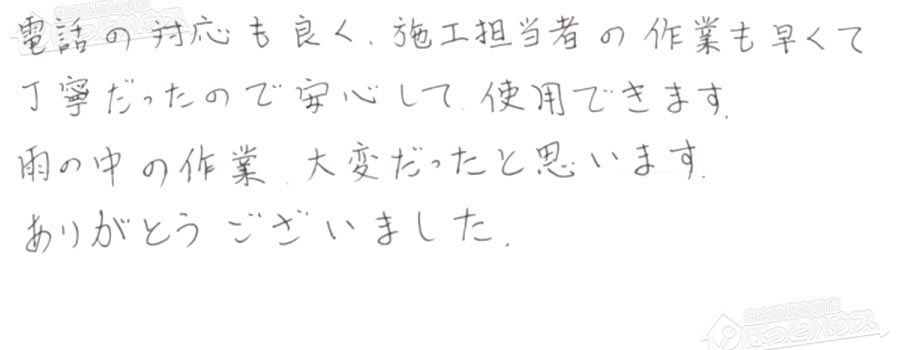 電話の対応も良く、施工担当者の作業も早くて
丁寧だったので安心して使用できます。
雨の中の作業、大変だったと思います。
ありがとうございました。
ほっとハウス